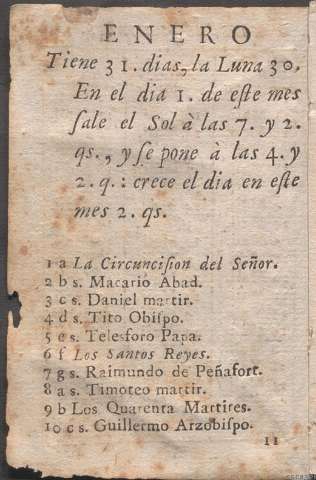 ENERO
Tiene 31. dias, la Luna 30.
En el dia 1. de eſte mes
ſale el Sol à las 7. y 2.
qs., y ſe pone à las 4. y
2. q.: crece el dia en eſte
mes 2. qs.
1 a La Circunciſion del Señor.
2 b s. Macario Abad.
3 c s. Daniel martir.
4 d s. Tito Obiſpo.
5 e s. Telesforo Papa.
6 f Los Santos Reyes.
7 g s. Raimundo de Peñafort.
8 a s. Timoteo martir.
9 b Los Quarenta Martires.
10 c s. Guillermo Arzobiſpo.
11